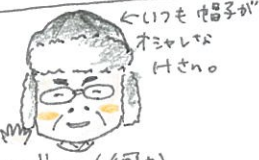 ←いつも帽子が
オシャレな
Hさん。